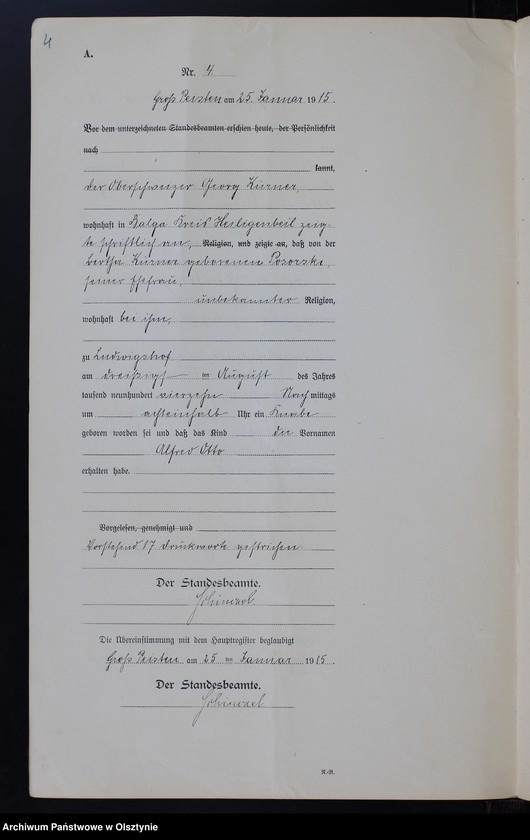 4
A.
Nr. 4
Groß Peisten am 25. Januar 1915.
Vor dem unterzeichneten Standesbeamten erschien heute, der Persönlichkeit
nach
kannt,
der Oberschweizer Georg Kürner,
wohnhaft in Balga Kreis Heiligenbeil zeig-
te schriftlich an, Religion, und zeigte an, daß von der
Bertha Kürner geborenen Posorski,
seiner Ehefrau,
unbekannter Religion,
wohnhaft bei ihm,
zu Ludwigshof
am dreißigst im August des Jahres
tausend neunhundert vierzehn Nachmittags
um achteinhalb Uhr ein Knabe
geboren worden sei und daß das Kind die Vornamen
Alfred Otto
erhalten habe.
Vorgelesen, genehmigt und
Vorstehend 17 Druckworte gestrichen
Der Standesbeamte.
Die Übereinstimmung mit dem Hauptregister beglaubigt
Groß Peisten am 25 ten Januar 1915.
Der Standesbeamte.
R.-R.
Archiwum Państwowe w Olsztynie